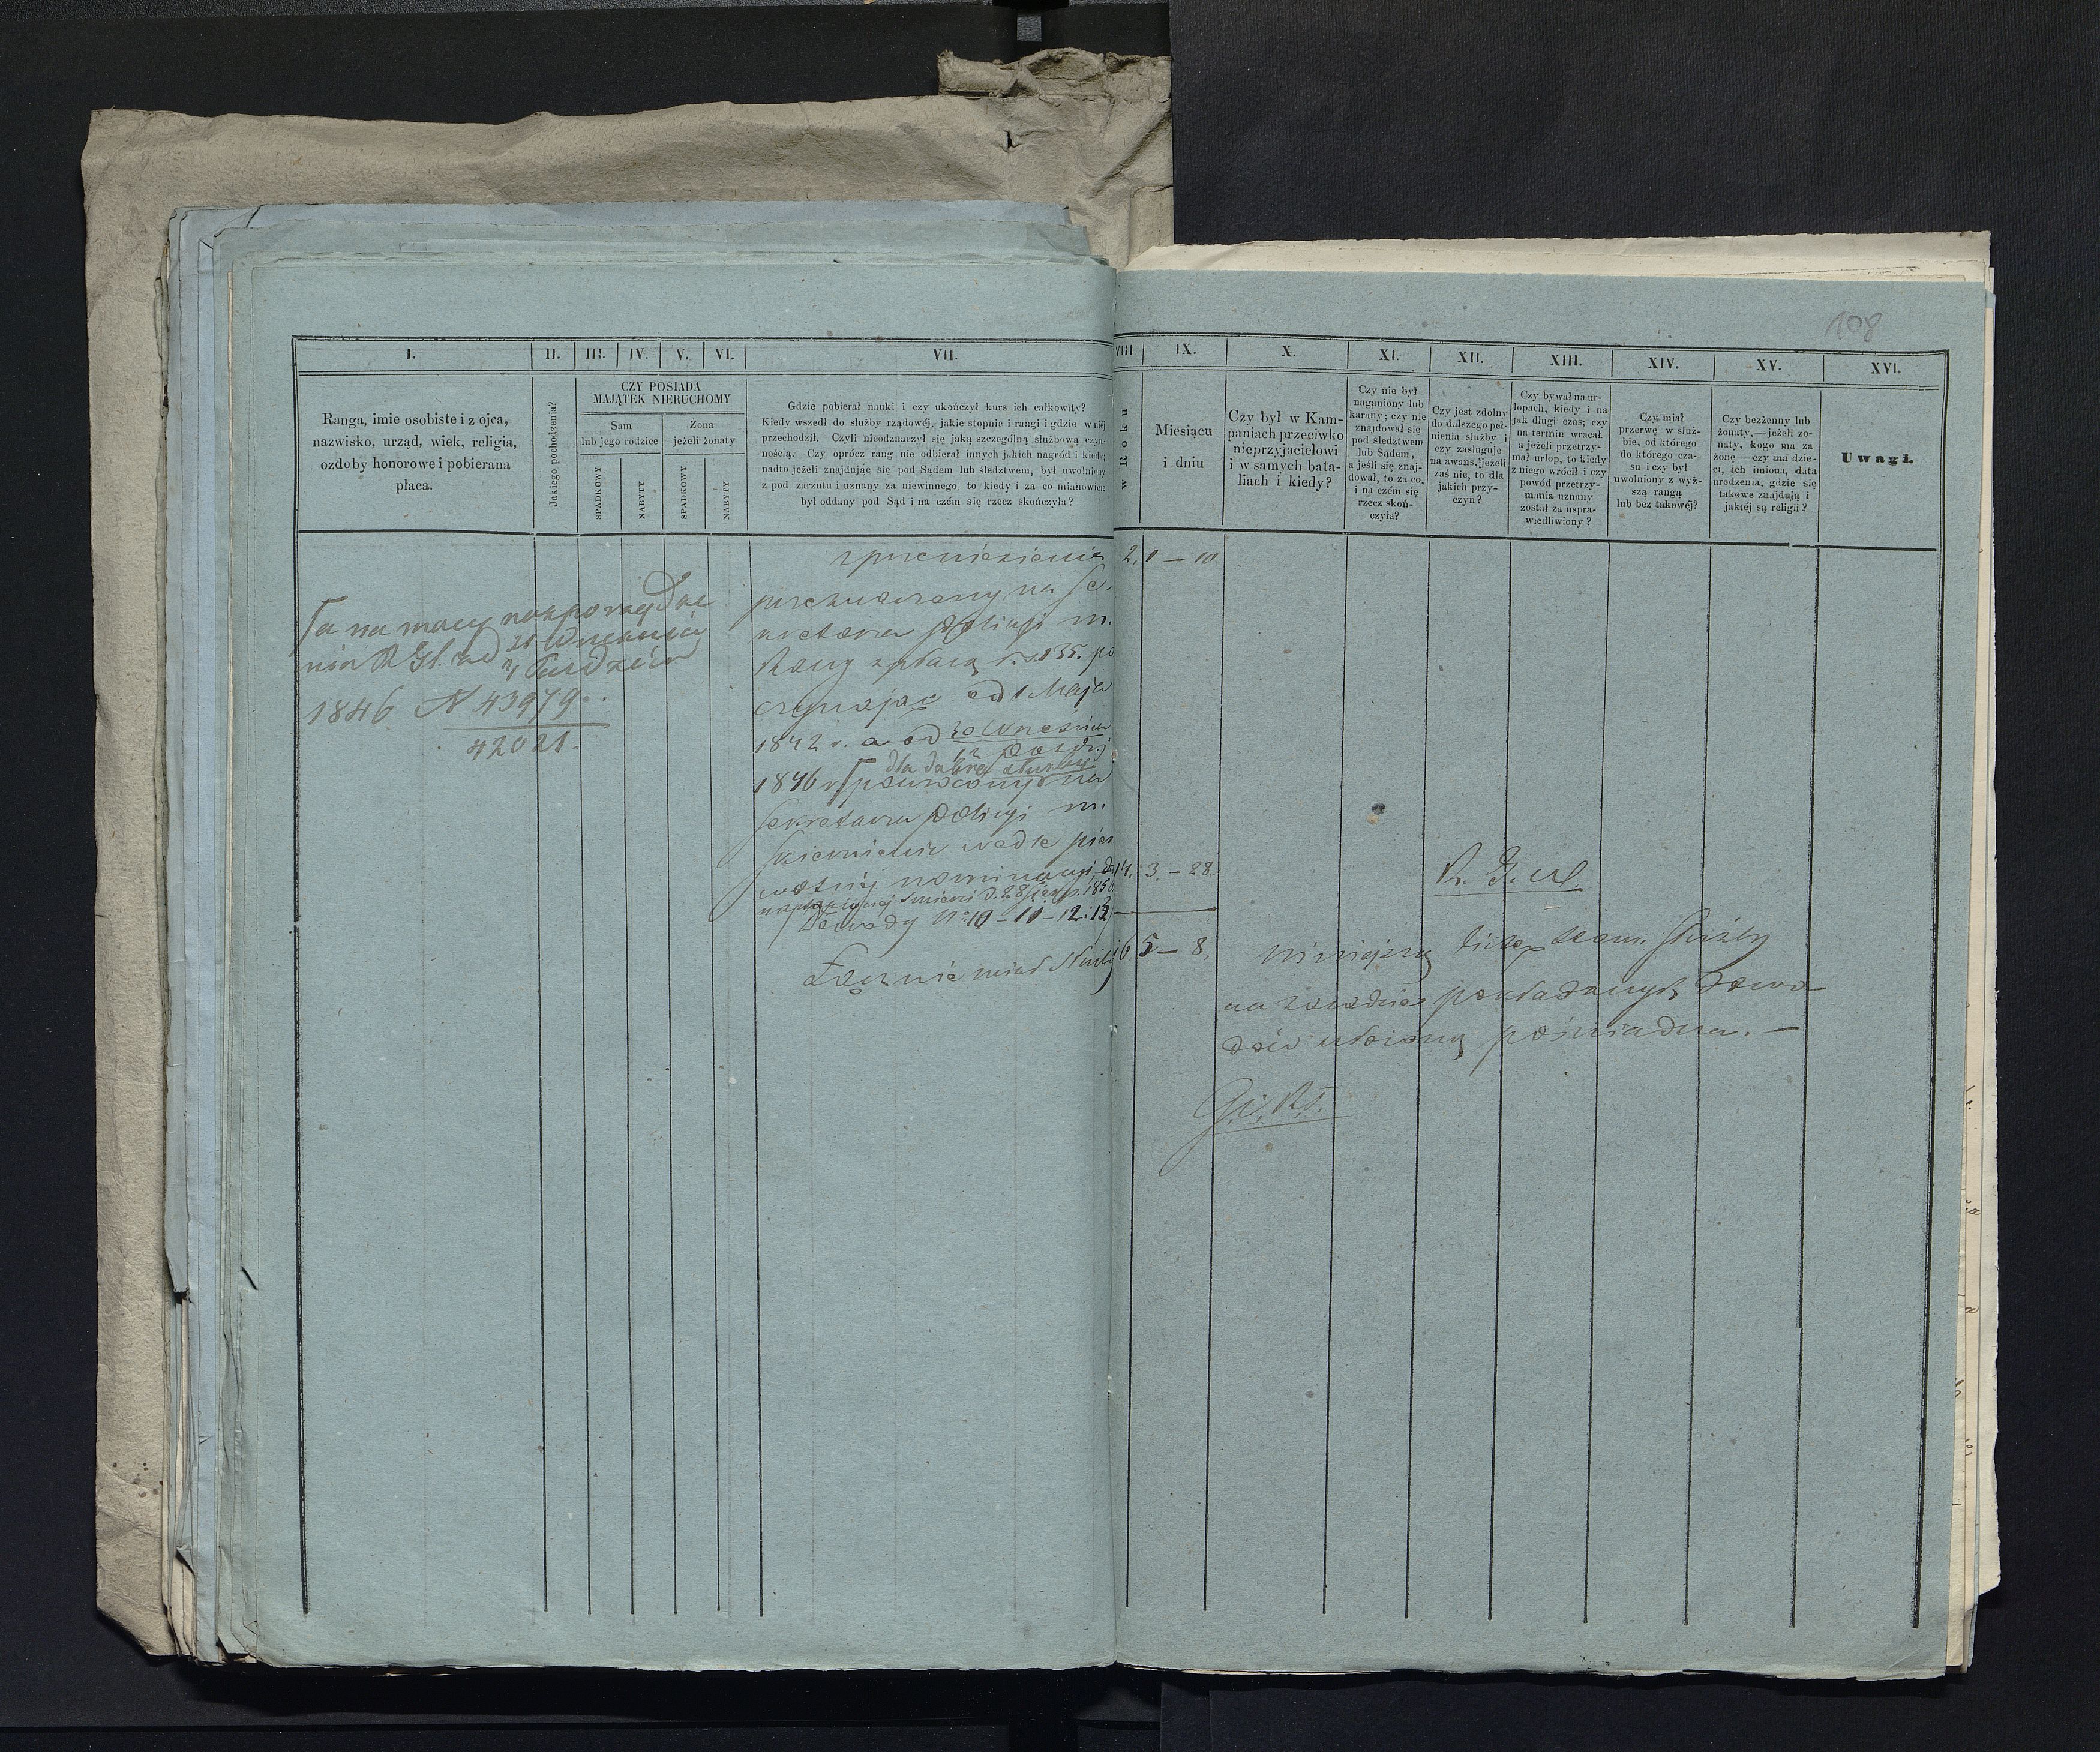 108
I.
II.
III.
IV.
V.
VI.
VII.
VIII
IX.
X.
XI.
XII.
XIII.
XIV.
XV.
XVI.
Ranga, imie osobiste i z ojca,
nazwisko, urząd, wiek, religia,
ozdoby honorowe i pobierana
płaca.
Jakiego pochodzenia?
CZY POSIADA
MAJĄTEK NIERUCHOMY
Sam
lub jego rodzice
Żona
jeżeli żonaty
SPADKOWY
NABYTY
SPADKOWY
NABYTY
Gdzie pobierał nauki i czy ukończył kurs ich całkowity?
Kiedy wszedł do służby rządowéj, jakie stopnie i rangi i gdzie w niéj
przechodził. Czyli nieodznaczył się jaką szczególną służbową czyn-
nością. Czy oprócz rang nie odbierał innych jakich nagród i kiedy;
nadto jeżeli znajdując się pod Sądem lub śledztwem, był uwolniony
z pod zarzutu i uznany za niewinnego, to kiedy i za co mianowicie
był oddany pod Sąd i na czém się rzecz skończyła?
w Roku
Miesiącu
i dniu
Czy był w Kam-
paniach przeciwko
nieprzyjacielowi
i w samych bata-
liach i kiedy?
Czy nie był
naganiony lub
karany; czy nie
znajdował się
pod śledztwem
lub Sądem,
a jeśli się znaj-
dował, to za co,
i na czém się
rzecz skoń-
czyła?
Czy jest zdolny
do dalszego peł-
nienia służby i
czy zasługuje
na awans, jeżeli
zaś nie, to dla
jakich przy-
czyn?
Czy bywał na ur-
lopach, kiedy i na
jak długi czas; czy
na termin wracał.
a jeżeli przetrzy-
mał urlop, to kiedy
z niego wrócił i czy
powód przetrzy-
mania uznany
został za uspra-
wiedliwiony?
Czy miał
przerwę w służ-
bie, od którego
do którego cza-
su i czy był
uwolniony z wyż-
szą rangą
lub bez takowéj?
Czy bezżenny lub
żonaty,—jeżeli żo-
naty, kogo ma za
żonę—czy ma dzie-
ci, ich imiona, data
urodzenia, gdzie się
takowe znajdują i
jakiéj są religii?
Uwagi.
na mocy rozporządze
nia R Gl. z d 20 Września
Paździer
1846 N 43979.
42021.
z przeniesienia
przeznaczony na Se-
kretarza Policyi m.
Rawy z płacą r. s. 135. po
czynając od 1 Maja
1842 r. a od 30 Września
12 Paźdr.
dla dobra służby
1846 r przeniesiony na
Sekretarza Policyi m.
Skierniewic wedle pier
wotnéj nominacyi, do
Dowody No 10 - 11 - 12 i 13
Łącznie miał służby
2. 1 — 10
14. 3. — 28.
6 5 — 8.
R. G. W.
niniejszą listę stanu służby
na zasadzie pokładanych dowo
dów ułożoną poświadcza. —